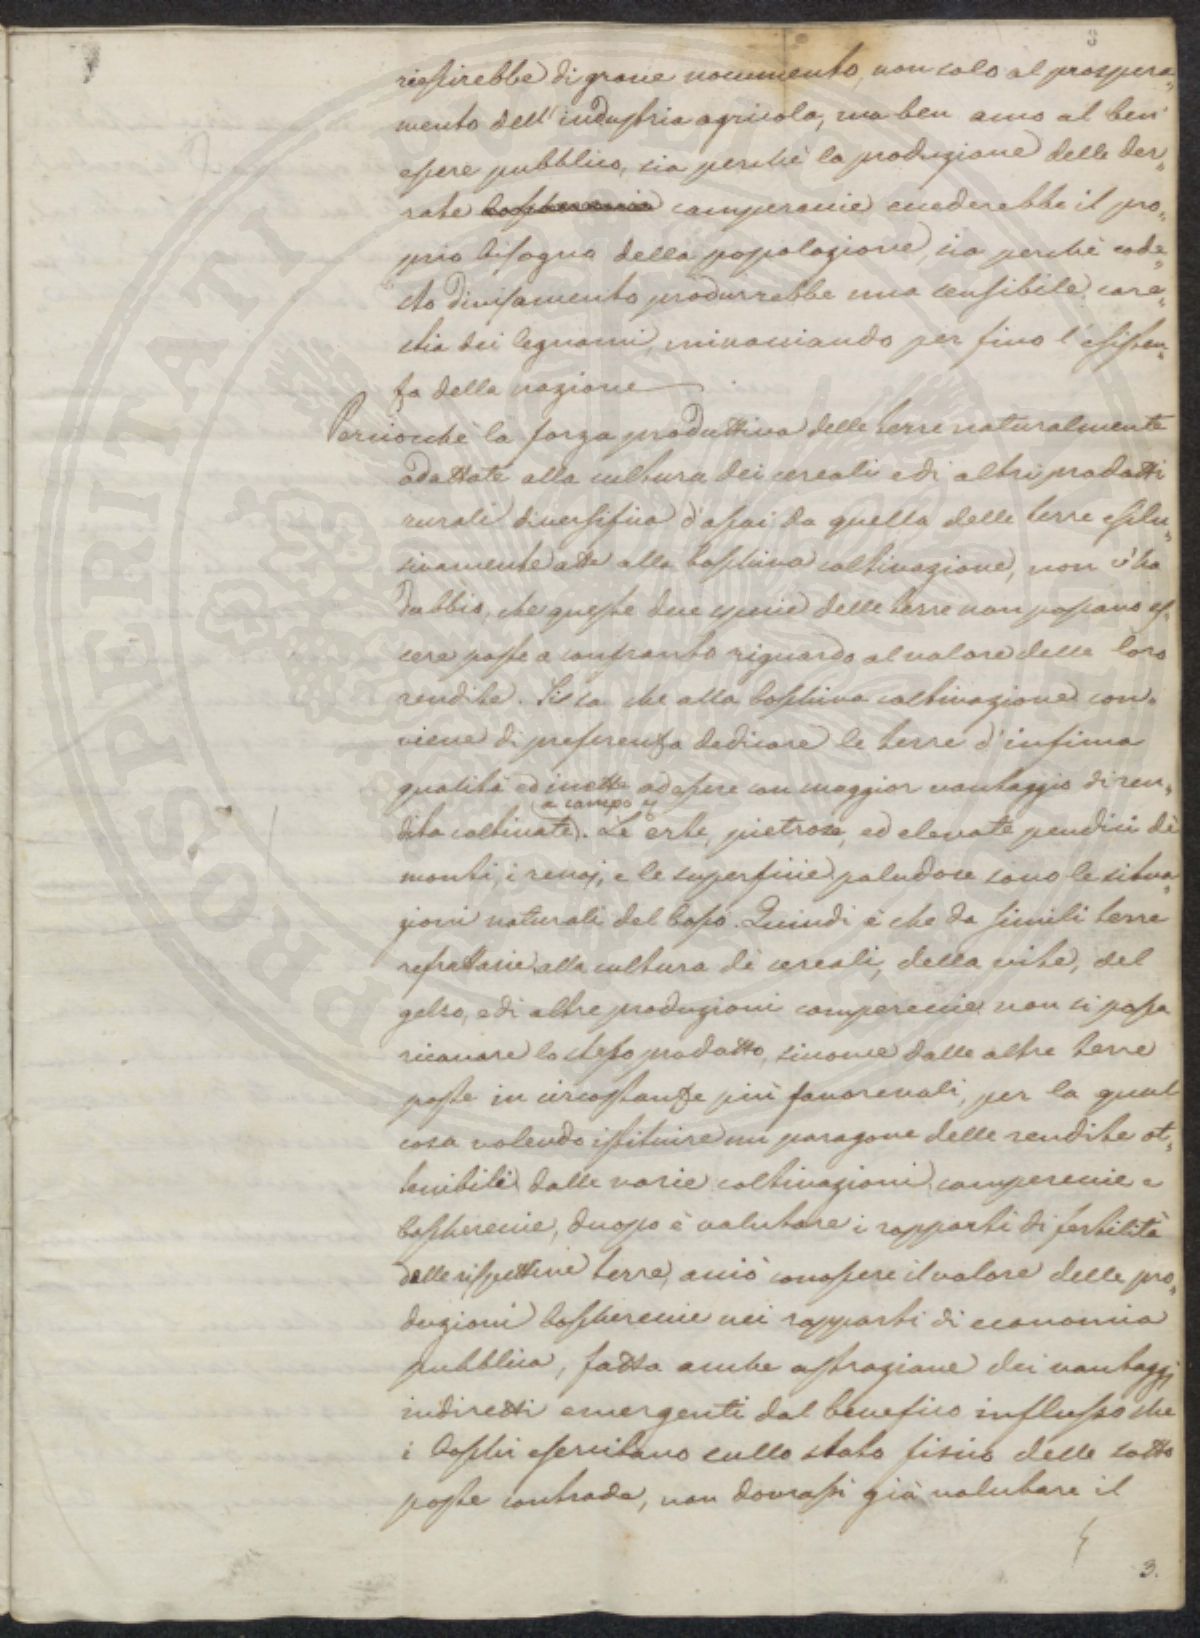 3
riescirebbe di grave nocumento, non solo al prospera„
mento dell'industria agricola, ma ben anco al ben'
essere pubblico, sia perchè la produzione delle der„
rate campereccie eccederebbe il pro„
prio bisogno della popolazione, sia perchè code„
sto divisamento produrrebbe una sensibile care„
stia dei legnami, minacciando per fino l'esisten„
za della nazione
Perciocchè la forza produttiva delle terre naturalmente
adattate alla cultura dei cereali e di altri prodotti
rurali diversifica d'assai da quella delle terre esclu„
sivamente atte alla boschiva coltivazione, non v'ha
dubbio, che queste due specie delle terre non possano es„
sere poste a confronto riguardo al valore delle loro
rendite. Si sa che alla boschiva coltivazione con„
viene di preferenza dedicare le terre d'infima
qualità ed inette ad essere con maggior vantaggio di ren„
a campo
dita coltivate. Le erte, pietrose, ed elevate pendici de'
monti, i renaj, e le superficie paludose sono le situa„
zioni naturali del bosco. Quindi è che da simili terre
refrattarie alla cultura de' cereali, della vite, del
gelso, e di altre produzioni campereccie non si possa
ricavare lo stesso prodotto, siccome dalle altre terre
poste in circostanze più favorevoli, per la qual
cosa volendo istituire un paragone delle rendite ot„
tenibili dalle varie coltivazioni campereccie e
boschereccie, duopo è valutare i rapporti di fertilità
delle rispettive terre, acciò conoscere il valore delle pro„
duzioni boschereccie nei rapporti di economia
pubblica, fatta anche astrazione dei vantaggi
indiretti emergenti dal benefico influsso che
i boschi esercitano sullo stato fisico delle sotto
poste contrade, non dovrassi già valutare il
3.
PROSPERITATI PUBLICAE